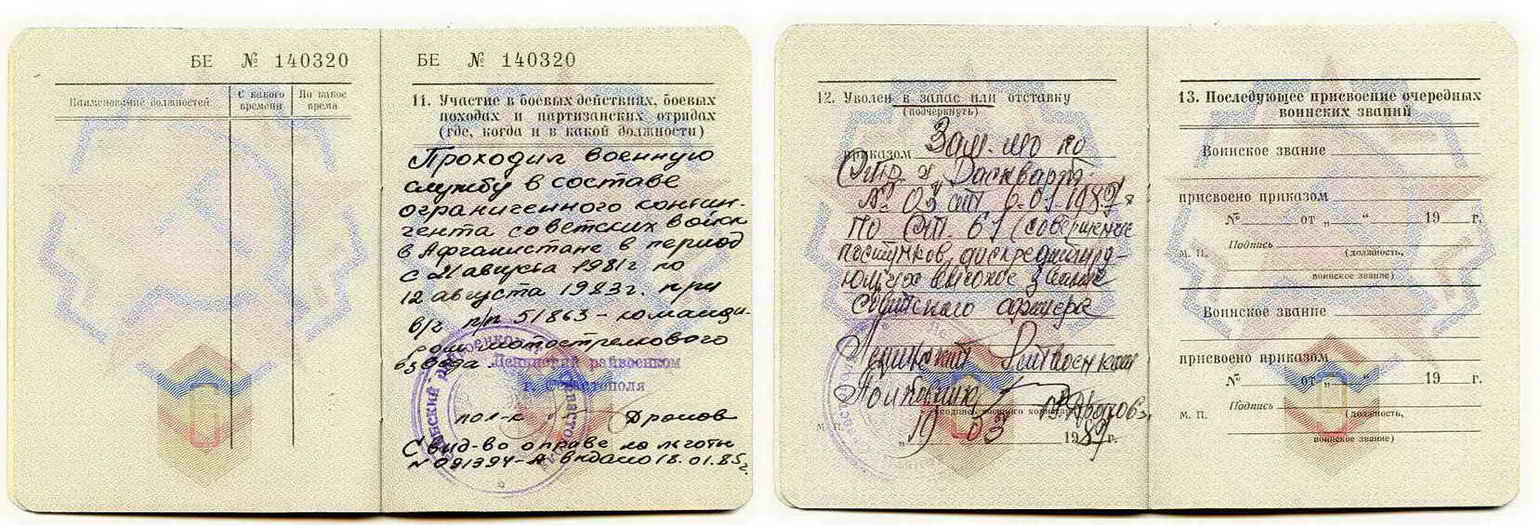 БЕ № 140320
Наименование должностей
С какого времени
По какое время
БЕ № 140320
11. Участие в боевых действиях, боевых
походах и партизанских отрядах
(где, когда и в какой должности)
Проходил военную
службу в составе
ограниченного контин-
гента советских войск
в Афганистане в период
с 21 августа 1981г по
12 августа 1983г. при
в/г п/п 51863 - команди-
ром мотострелкового
взвода.
Ленинский райвоенком
г. Севастополя
пол-к Дролов
Свид-во о праве на льготы
№ 091394-А выдано 18.01.85г.
12. Уволен в запас или отставку
(подчеркнуть)
приказом Зам. МО по
№ 03 от 6.01.1987г
по ст. 61 (совершение
поступков, дискредитиру-
ющих высокое звание
Советского офицера
Ленинский Райвоенком
Полковник
(подпись военного комиссара)
М. П. „19 03 1987г.
13. Последующее присвоение очередных
воинских званий
Воинское звание
присвоено приказом
№ от „ “ 19 г.
Подпись
М. П. (должность,
воинское звание)
Воинское звание
присвоено приказом
№ от „ “ 19 г.
Подпись
М. П. (должность,
воинское звание)